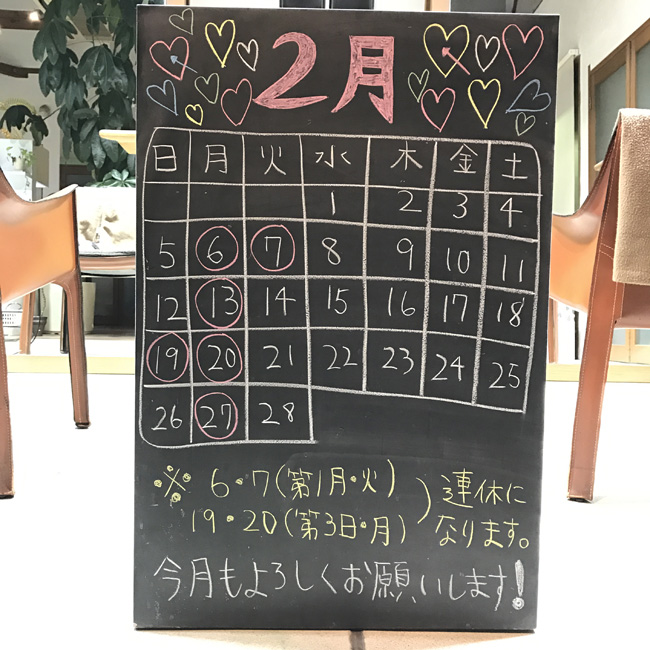 2月
日 月 火 水 木 金 土
1 2 3 4
5 6 7 8 9 10 11
12 13 14 15 16 17 18
19 20 21 22 23 24 25
26 27 28
※ 6・7(第1月・火)
19・20(第3日・月)
) 連休に
なります。
今月もよろしくお願いします!